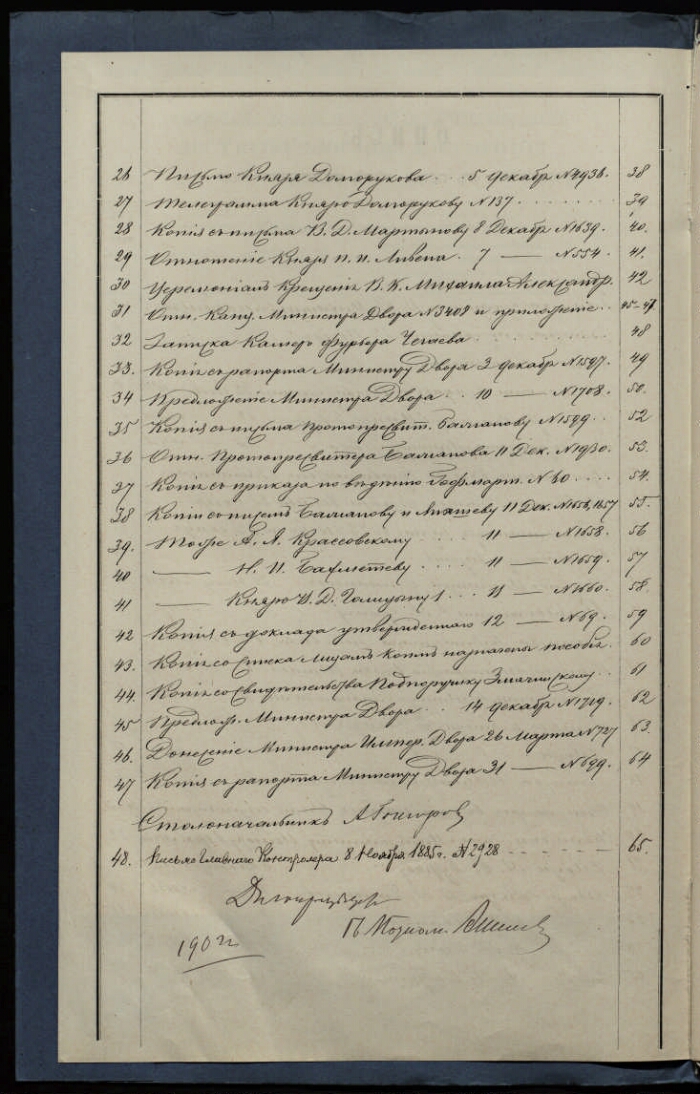 26 Письмо Князя Долгорукова . . . 5 декабр №4936. 38
27 Телеграмма Князю Долгорукову №137 . . . . 39
28 Копія съ письма В. Д. Мартынову 8 Декабр №1639. 40.
29 Отношеніе Князя П. П. Ливена. 7 — №554. 41.
30 Церемоніалъ Крещенія В. К. Михаила Александр. 42
31 Отн. Канц. Министра Двора №3408 и приложеніе. 45-47
32 Записка Камеръ Фурьера . . . . 48
33. Копія съ рапорта Министру Двора 3 декабр №1597. 49
34 Предложеніе Министра Двора . . 10 — №1708. 50.
35 Копія съ письма Протопресвит. Бажанову №1599. 52
36 Отн. Протопресвитера Бажанова 11 Дек. №1930. 53.
37 Копія съ приказа по вѣдѣнію Гофмарш. №60 . . . . 54.
38 Копіи съ писемъ Бажанову и 11 Дек. №1656, 1657 55.
39. Тоже А. А. Крассовскому . . . . 11 — №1658. 56
40 — Н. П. Бахметеву . . . . 11 — №1659. 57
41 — Князю Голицыну . . . 11 — №1660. 58.
42 Копія съ доклада утвержденнаго 12 — №69. 59
43. Копія со списка лицамъ коимъ назначены пособія. 60
44. Копія со Свидѣтельства Подпоручику . . 61
45 Предлож. Министра Двора . . 14 декабр №1719. 62
46. Донесеніе Министра Импер. Двора 26 Марта №727 63.
47 Копія съ рапорта Министру Двора 31 — №699. 64
Столоначальникъ А.
48. Письмо Главнаго Контролера 8. Ноября 1885г. №2928 - - - - 65.
1902г